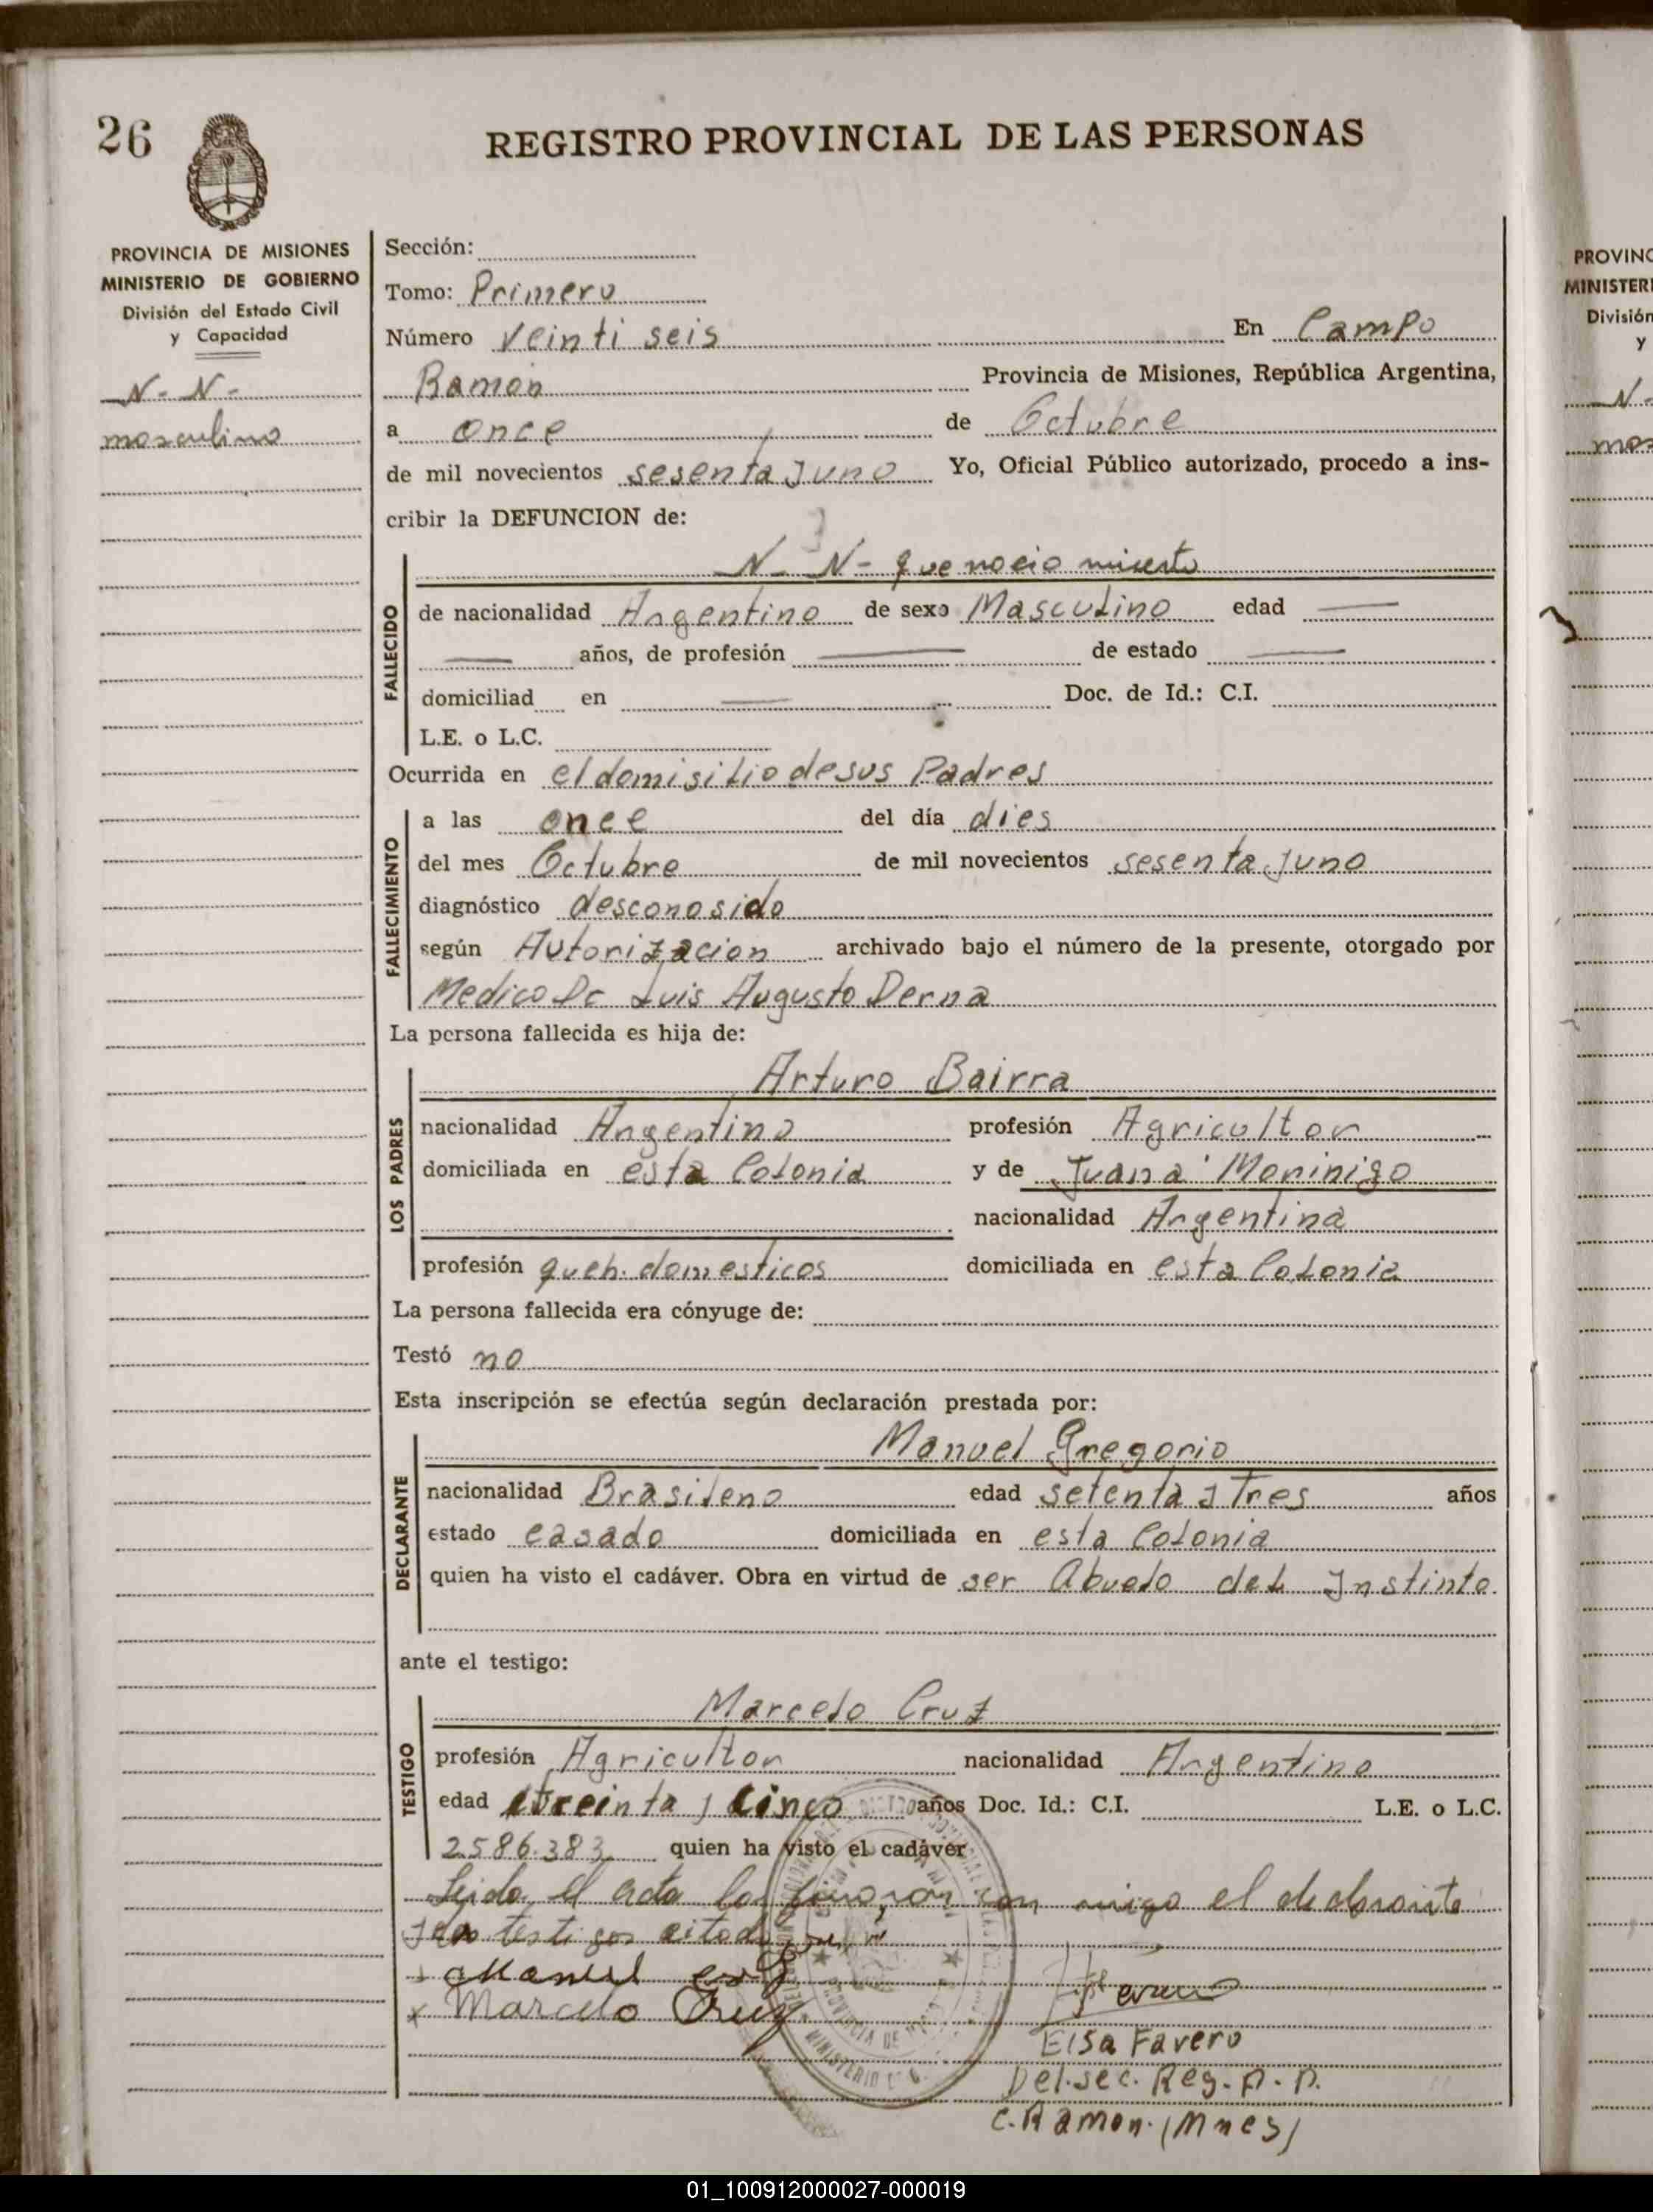 26
REGISTRO PROVINCIAL DE LAS PERSONAS
PROVINCIA DE MISIONES
MINISTERIO DE GOBIERNO
División del Estado Civil
y Capacidad
N. N.
masculino
Sección:
Tomo: Primero
Número Veinti seis En Campo
Ramón Provincia de Misiones, República Argentina,
a once de Octubre
de mil novecientos sesenta y uno Yo, Oficial Público autorizado, procedo a ins-
cribir la DEFUNCION de:
N. N- que nacio muerto
FALLECIDO
de nacionalidad Argentino de sexo Masculino edad —
— años, de profesión — de estado —
domiciliad en — Doc. de Id.: C.I.
L.E. o L.C.
Ocurrida en el domisilio de sus Padres
FALLECIMIENTO
a las once del día dies
del mes Octubre de mil novecientos sesenta y uno
diagnóstico desconosido
según Autorizacion archivado bajo el número de la presente, otorgado por
Medico Dr Luis Augusto Derna
La persona fallecida es hija de:
LOS PADRES
Arturo Bairra
nacionalidad Argentino profesión Agricultor
domiciliada en esta Colonia y de Juana Morinigo
nacionalidad Argentina
profesión queh. domesticos domiciliada en esta Colonia
La persona fallecida era cónyuge de:
Testó no
Esta inscripción se efectúa según declaración prestada por:
DECLARANTE
Manuel Gregorio
nacionalidad Brasileno edad setenta y Tres años
estado casado domiciliada en esta Colonia
quien ha visto el cadáver. Obra en virtud de ser Abuelo del Instinto.
ante el testigo:
TESTIGO
Marcelo Cruz
profesión Agricultor nacionalidad Argentino
edad treinta y Cinco años Doc. Id.: C.I. L.E. o L.C.
2586.383 quien ha visto el cadáver
Leida el acta la firmaron con migo el declarante
y los testigos citado
Manuel
x Marcelo Cruz
Elsa Favero
Del. sec. Reg. P. P.
C. Ramon. (Mnes)
PROVINC
MINISTERI
División
y
N.
mas
01_100912000027-000019